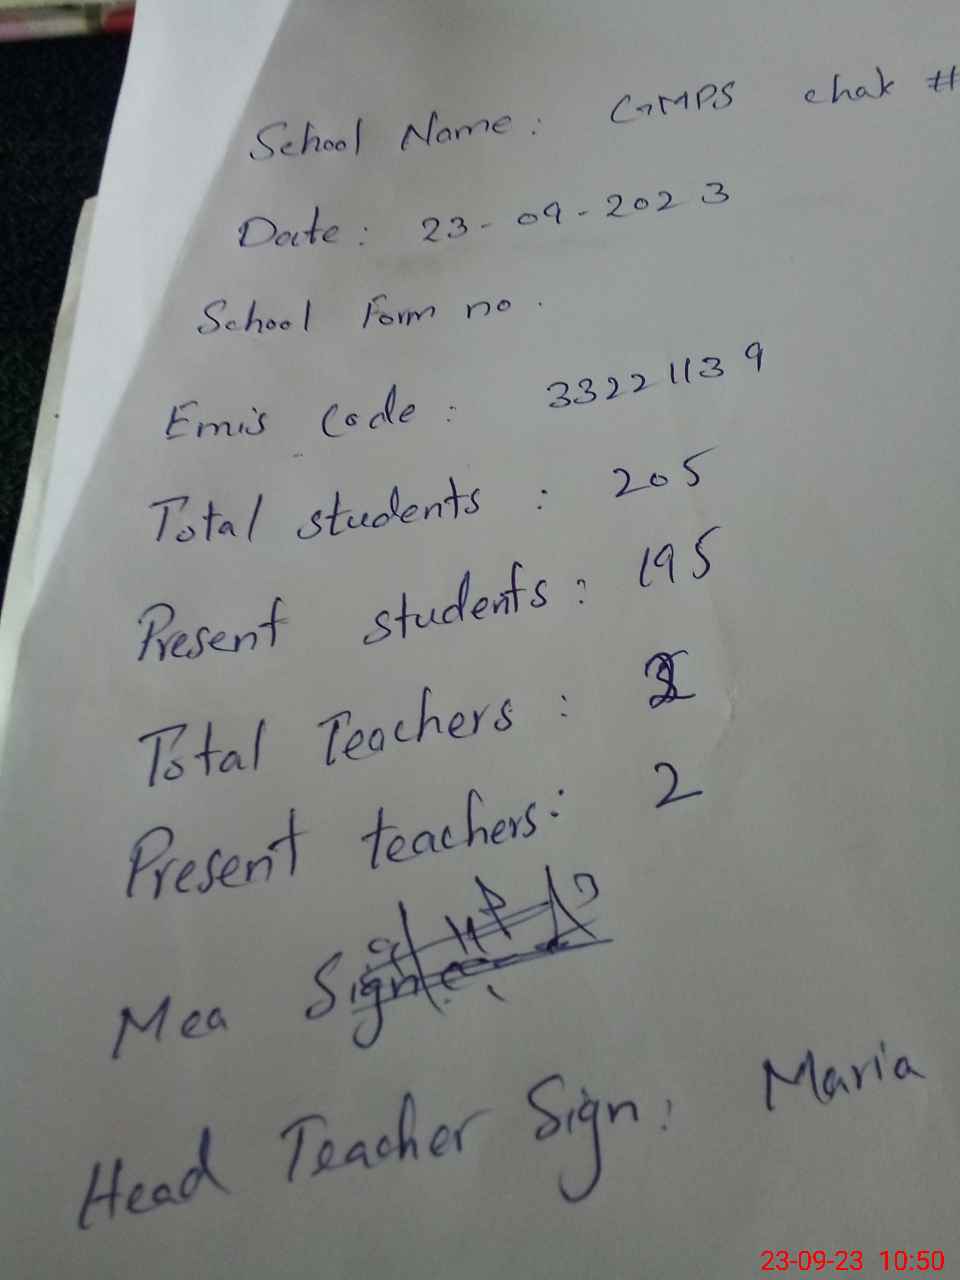 School Name: GMPS chak #
Date: 23-09-2023
School Form no.
Emis Code: 33221139
Total students: 205
Present students: 195
Total Teachers:
Present teachers: 2
Mea Sign
Head Teacher Sign: Maria
23-09-23 10:50